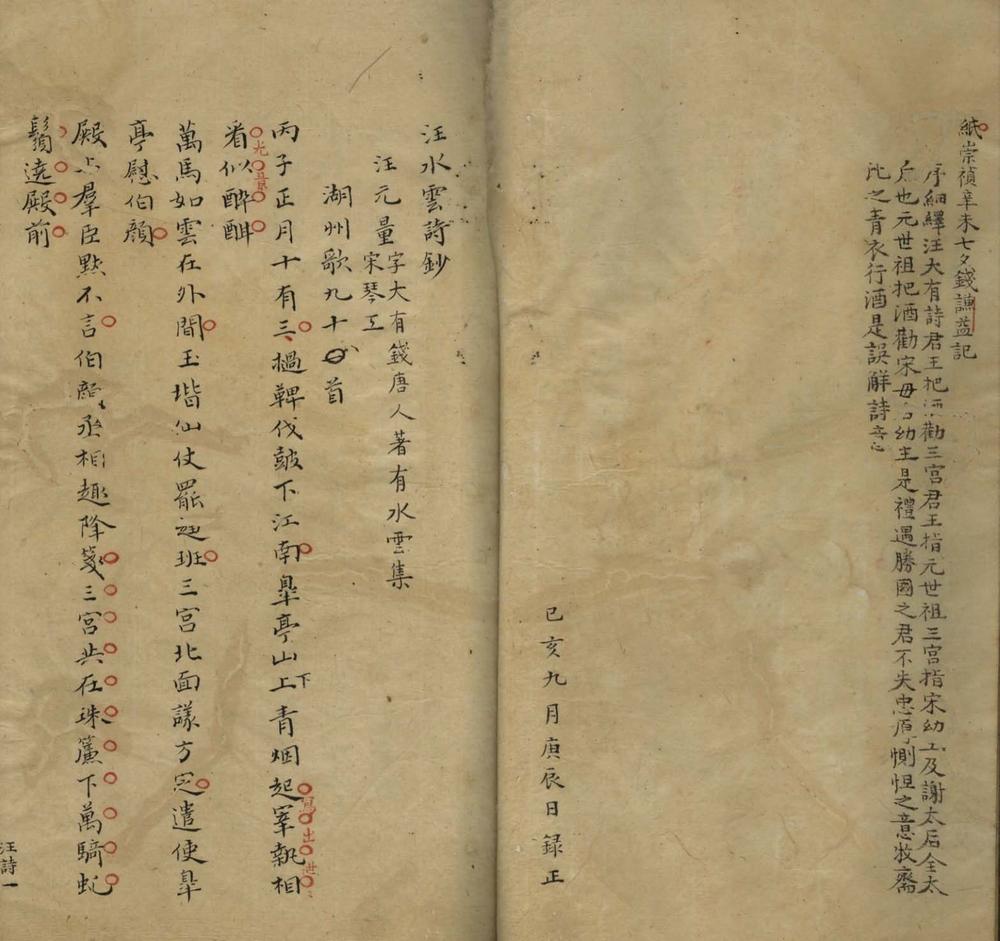 紙崇禎辛未七夕錢謙益記
序細繹汪大有詩君王把酒勸三宮君王指元世祖三宮指宋幼主及謝太后全太
后也元世祖把酒勸宋毋后幼主是禮遇勝國之君不失忠厚惻怛之意牧齋
比之青衣行酒是誤解詩意
己亥九月庚辰日錄正
汪水雲詩鈔
汪元量字大有錢唐人著有水雲集
宋琴工
湖州歌九十首
丙子正月十有三撾鞞伐鼓下江南臯亭山上青烟起宰執相
看似醉酣
萬馬如雲在外間玉堦仙仗罷班三宮北面議方定遣使臯
亭慰伯顏
殿上羣臣默不言伯顏丞相趣降箋三宮共在珠簾下萬騎虬
鬚遶殿前
下
光景
出世
汪詩一